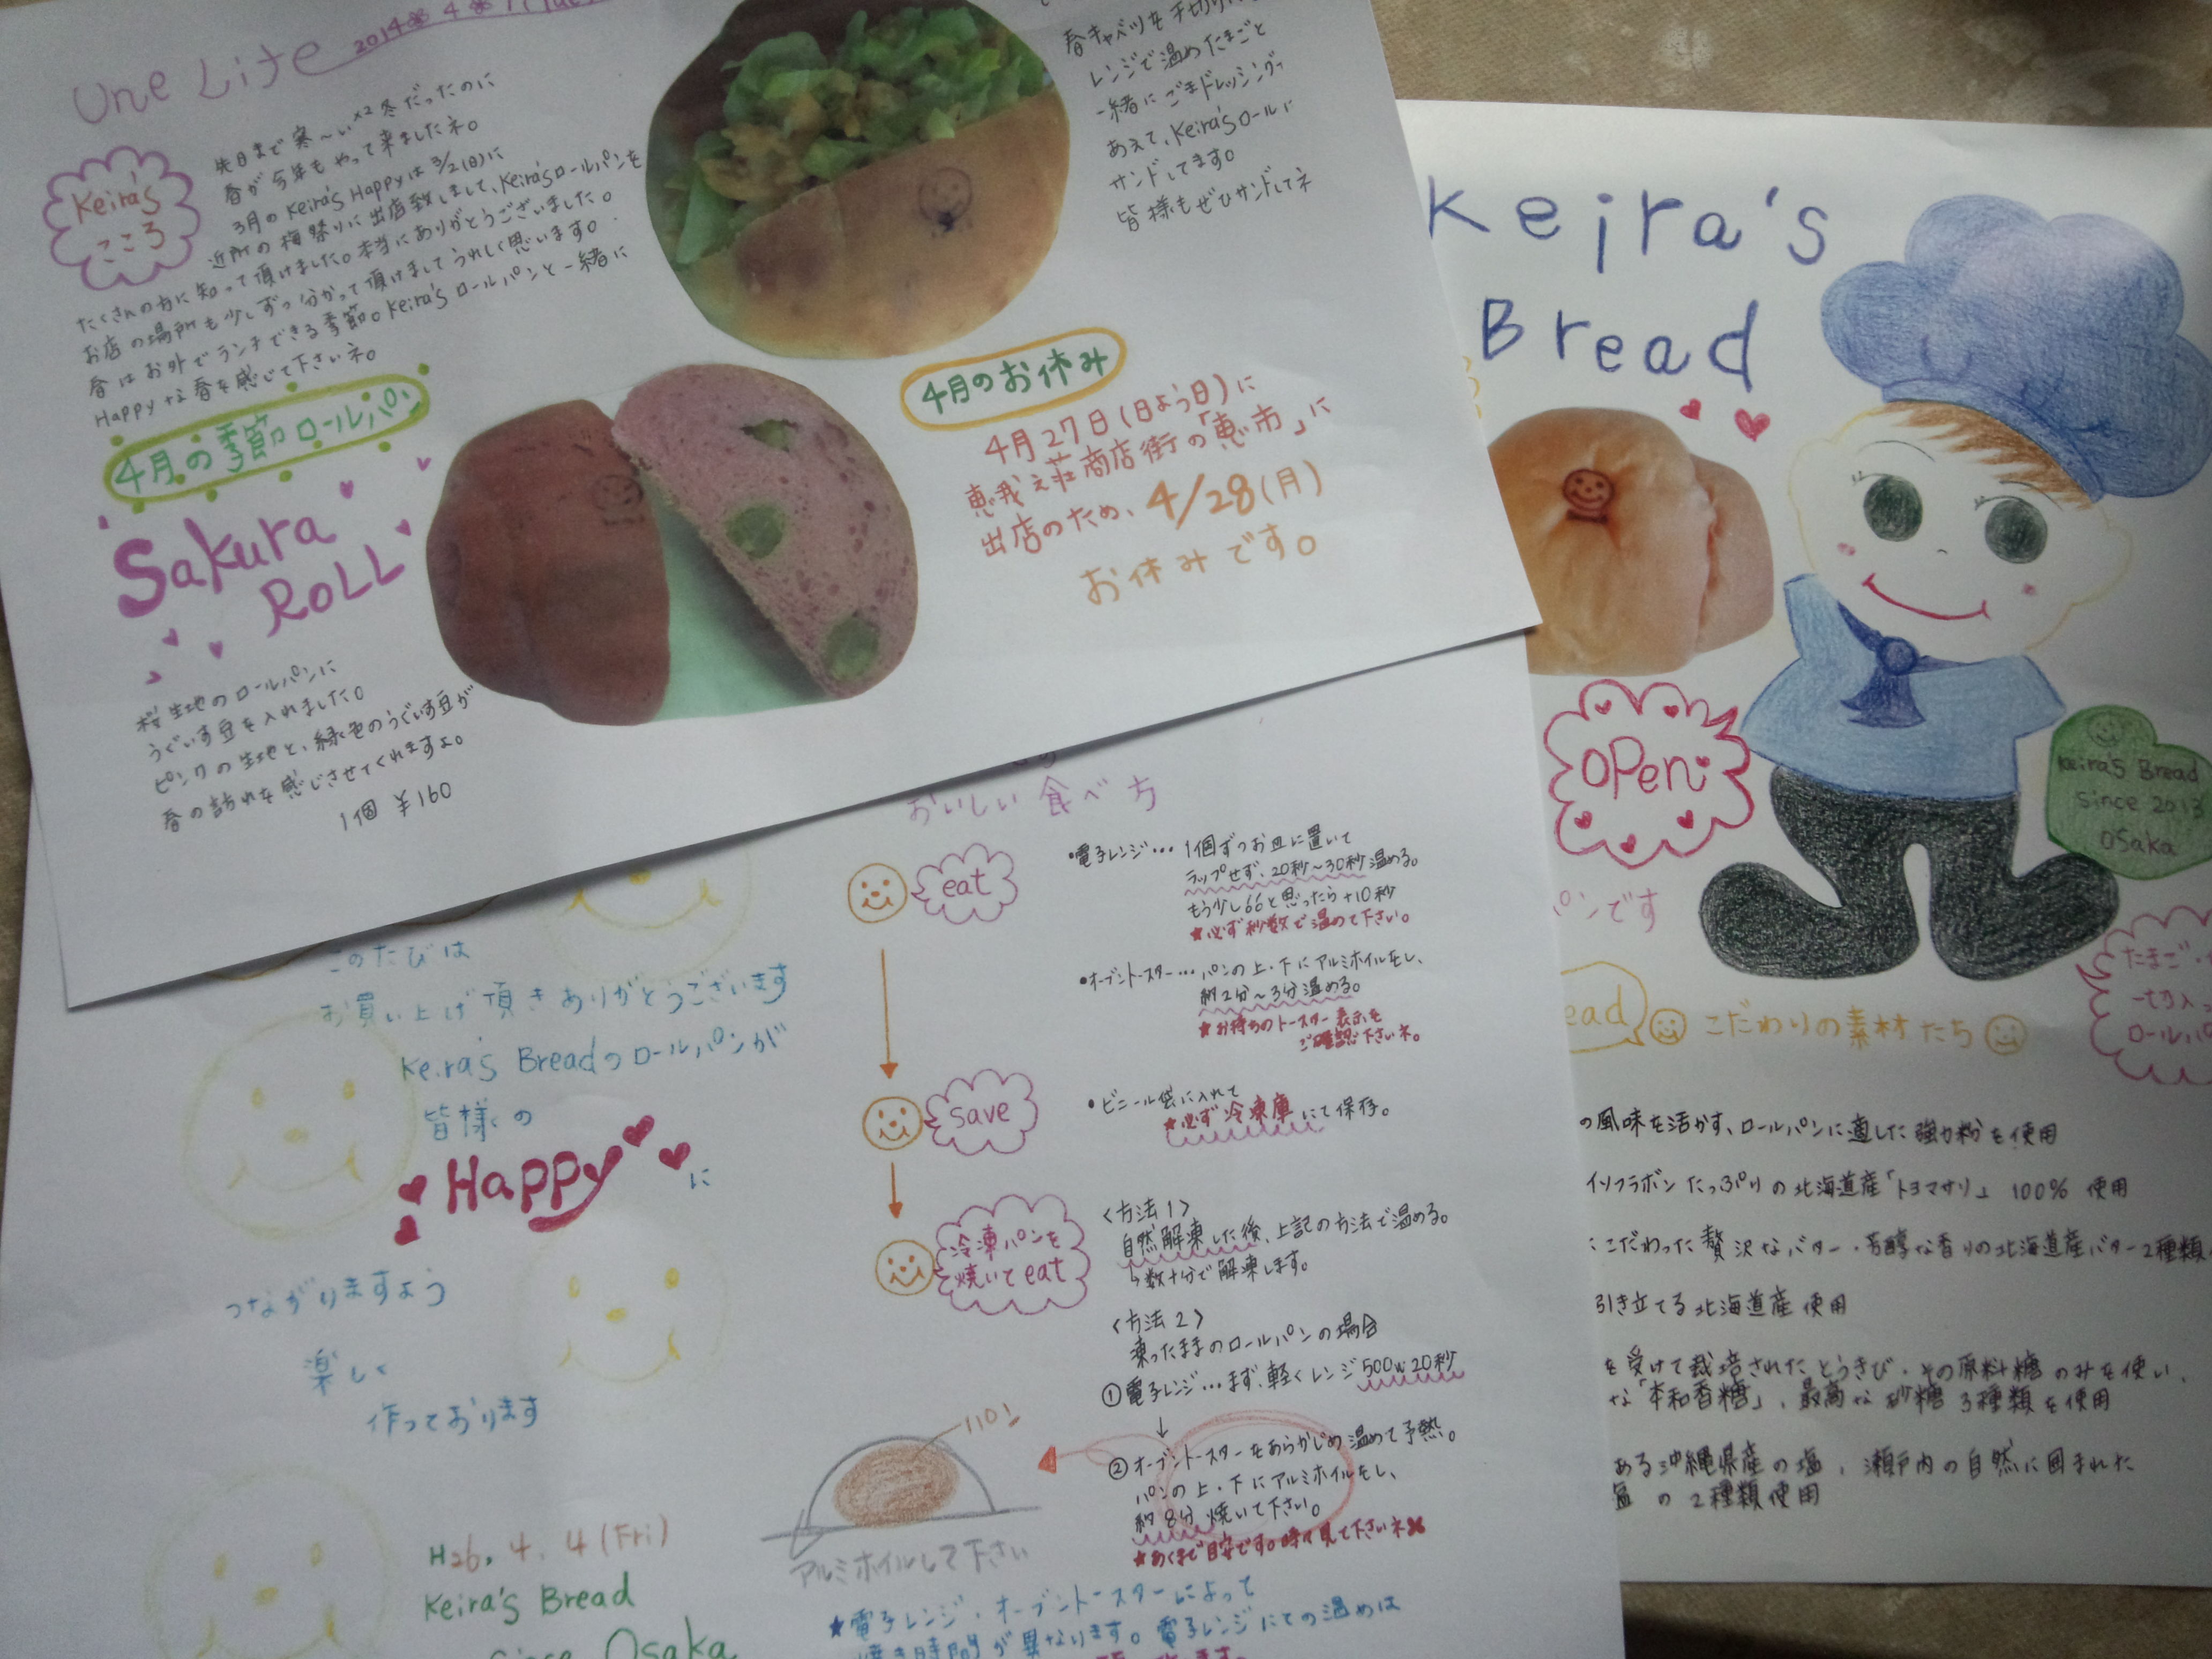 Une Life 2014 4
Keira's
こころ
先日まで寒〜い×2冬だったのに
春が今年もやって来ましたネ。
3月のKeira's Happyは3/2(日)に
近所の梅祭りに出店致しまして、Keira'sロールパンを
たくさんの方に知って頂けました。本当にありがとうございました。
お店の場所も少しずつ分かって頂けましてうれしく思います。
春はお外でランチできる季節。Keira'sロールパンと一緒に
Happyな春を感じて下さいネ。
4月の季節ロールパン
Sakura
ROLL
桜生地のロールパンに
うぐいす豆を入れました。
ピンクの生地と、緑色のうぐいす豆が
春の訪れを感じさせてくれますよ。
1個 ¥160
春キャベツを手切り
レンジで温めたまごと
一緒にごまドレッシングで
あえて、Keira'sロールに
サンドしてます。
皆様もぜひサンドしてネ
4月のお休み
4月27日(日よう日)に
恵我之荘商店街の「恵市」に
出店のため、4/28(月)
お休みです。
このたびは
お買い上げ頂きありがとうございます
Keira's Breadのロールパンが
皆様の
Happyに
つながりますよう
楽しく
作っております
H26. 4. 4 (Fri)
Keira's Bread
Since Osaka
おいしい食べ方
eat
•電子レンジ… 1個ずつお皿に置いて
ラップせず、20秒〜30秒温める。
もう少し…と思ったら+10秒
★必ず秒数で温めて下さい。
•オーブントースター… パンの上・下にアルミホイルをし、
約2分〜3分温める。
★お持ちのトースター表示を
ご確認下さいネ。
save
•ビニール袋に入れて
★必ず冷凍庫にて保存。
冷凍パンを
焼いてeat
<方法1>
自然解凍した後、上記の方法で温める。
↳数十分で解凍します。
<方法2>
凍ったままのロールパンの場合
①電子レンジ…まず、軽くレンジ500w20秒
↓
②オーブントースターをあらかじめ温めて予熱。
パンの上・下にアルミホイルをし、
約8分焼いて下さい。
★あくまで目安です。時々見て下さいネ
パン
アルミホイルして下さい
★電子レンジ・オーブントースターによって
焼き時間が異なります。電子レンジにての温めは
Keira's
Bread
OPen
Keira's Bread
since 2013
Osaka
パンです
ead
こだわりの素材たち
たまご・
一切入
ロールパ
の風味を活かす、ロールパンに適した強力粉を使用
イソフラボンたっぷりの北海道産「トヨマサリ」100%使用
こだわった贅沢なバター・芳醇な香りの北海道産バター2種類
引き立てる北海道産使用
を受けて栽培されたとうきび・その原料糖のみを使い、
な「本和香糖」、最高な砂糖3種類を使用
ある沖縄県産の塩、瀬戸内の自然に囲まれた
塩の2種類使用